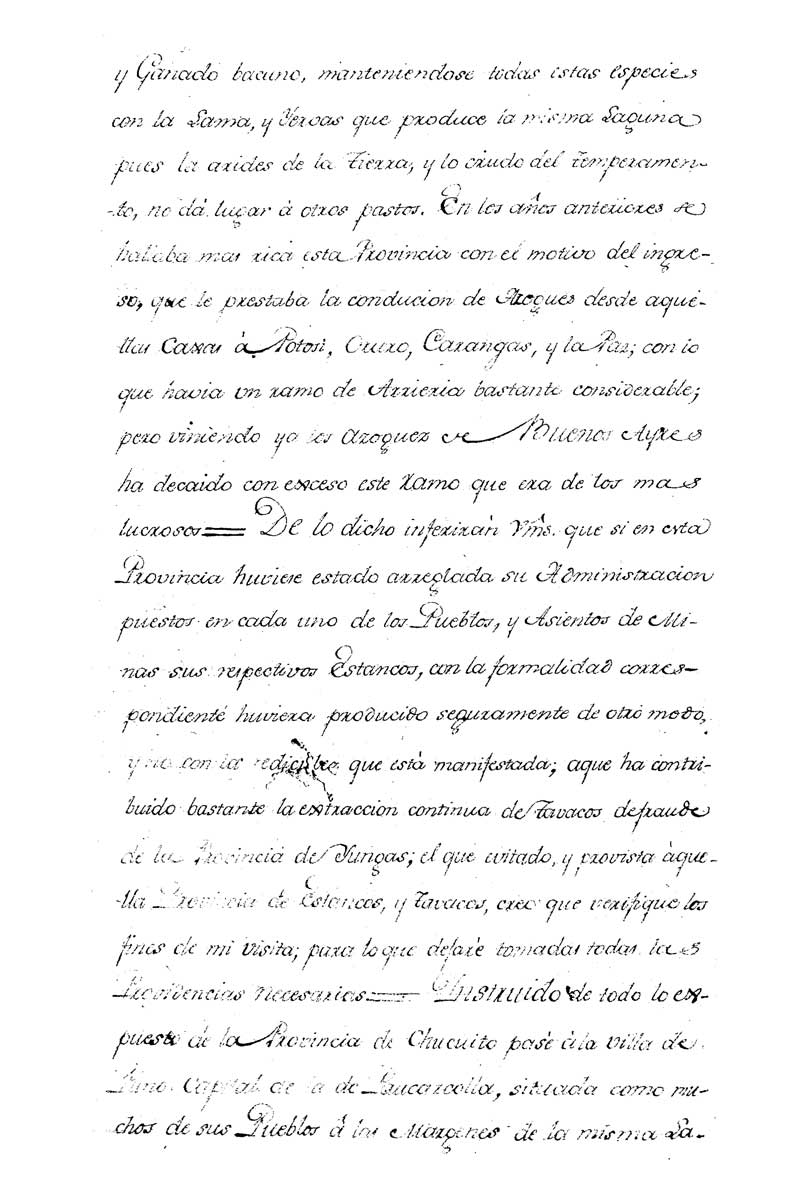 y Ganado bacuno, manteniendose todas estas especies
con la Lama, y Yervas que produce la misma Laguna
pues la arides de la Tierra, y lo crudo del temperamen-
-to, no dá lugar à otros pastos. En los años anteriores se
hallaba mas rica esta Provincia con el motivo del ingre-
so, que le prestaba la conducion de Azogues desde aque-
llas Caxas à Potosi, Oruro, Carangas, y la Paz; con lo
que havia un ramo de Arrieria bastante considerable;
pero viniendo ya los azoguez de Buenos Ayres
ha decaido con exceso este Ramo que era de los mas
lucrosos = De lo dicho inferiràn Vms. que si en esta
Provincia huviese estado arreglada su Administracion
puestos en cada uno de los Pueblos, y Asientos de Mi-
nas sus respectivos Estancos, con la formalidad corres-
pondiente huviera producido seguramente de otro modo,
y no con la que està manifestada; aque ha contri-
buido bastante la extraccion continua de Tavacos defraude
de la Provincia de Yungas; el que evitado, y provista àque-
lla Provincia de Estancos, y Tavacos, creo que verifique los
fines de mi visita; para lo que dejarè tomadas todas las
Providencias necesarias = Instruido de todo lo ex-
puesto de la Provincia de Chucuito pasè à la villa de
Puno Capital de la de Paucarcolla, situada como mu-
chos de sus Pueblos à las Margenes de la misma La-